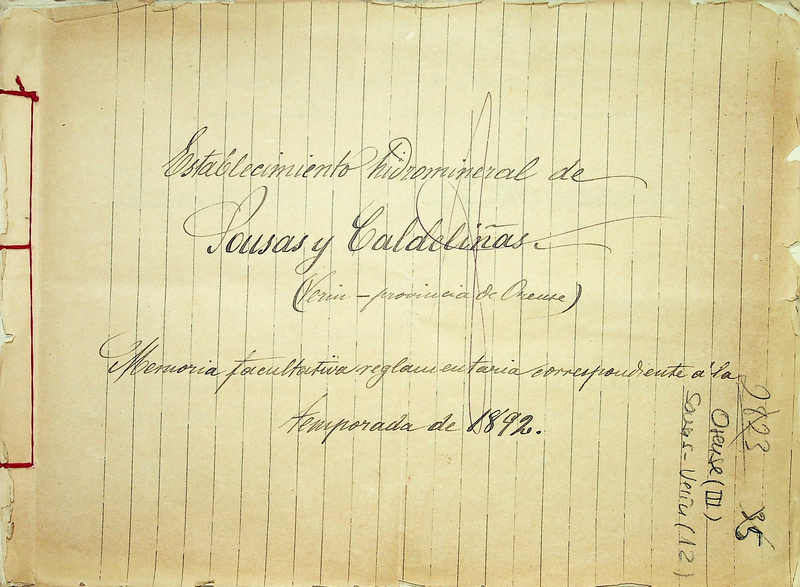 Establecimiento hidromineral de
Sousas y Caldeliñas
(Verin - provincia de Orense)
Memoria facultativa reglamentaria correspondiente á la
temporada de 1892.
2823
35
Orense (III)
Verin (12)